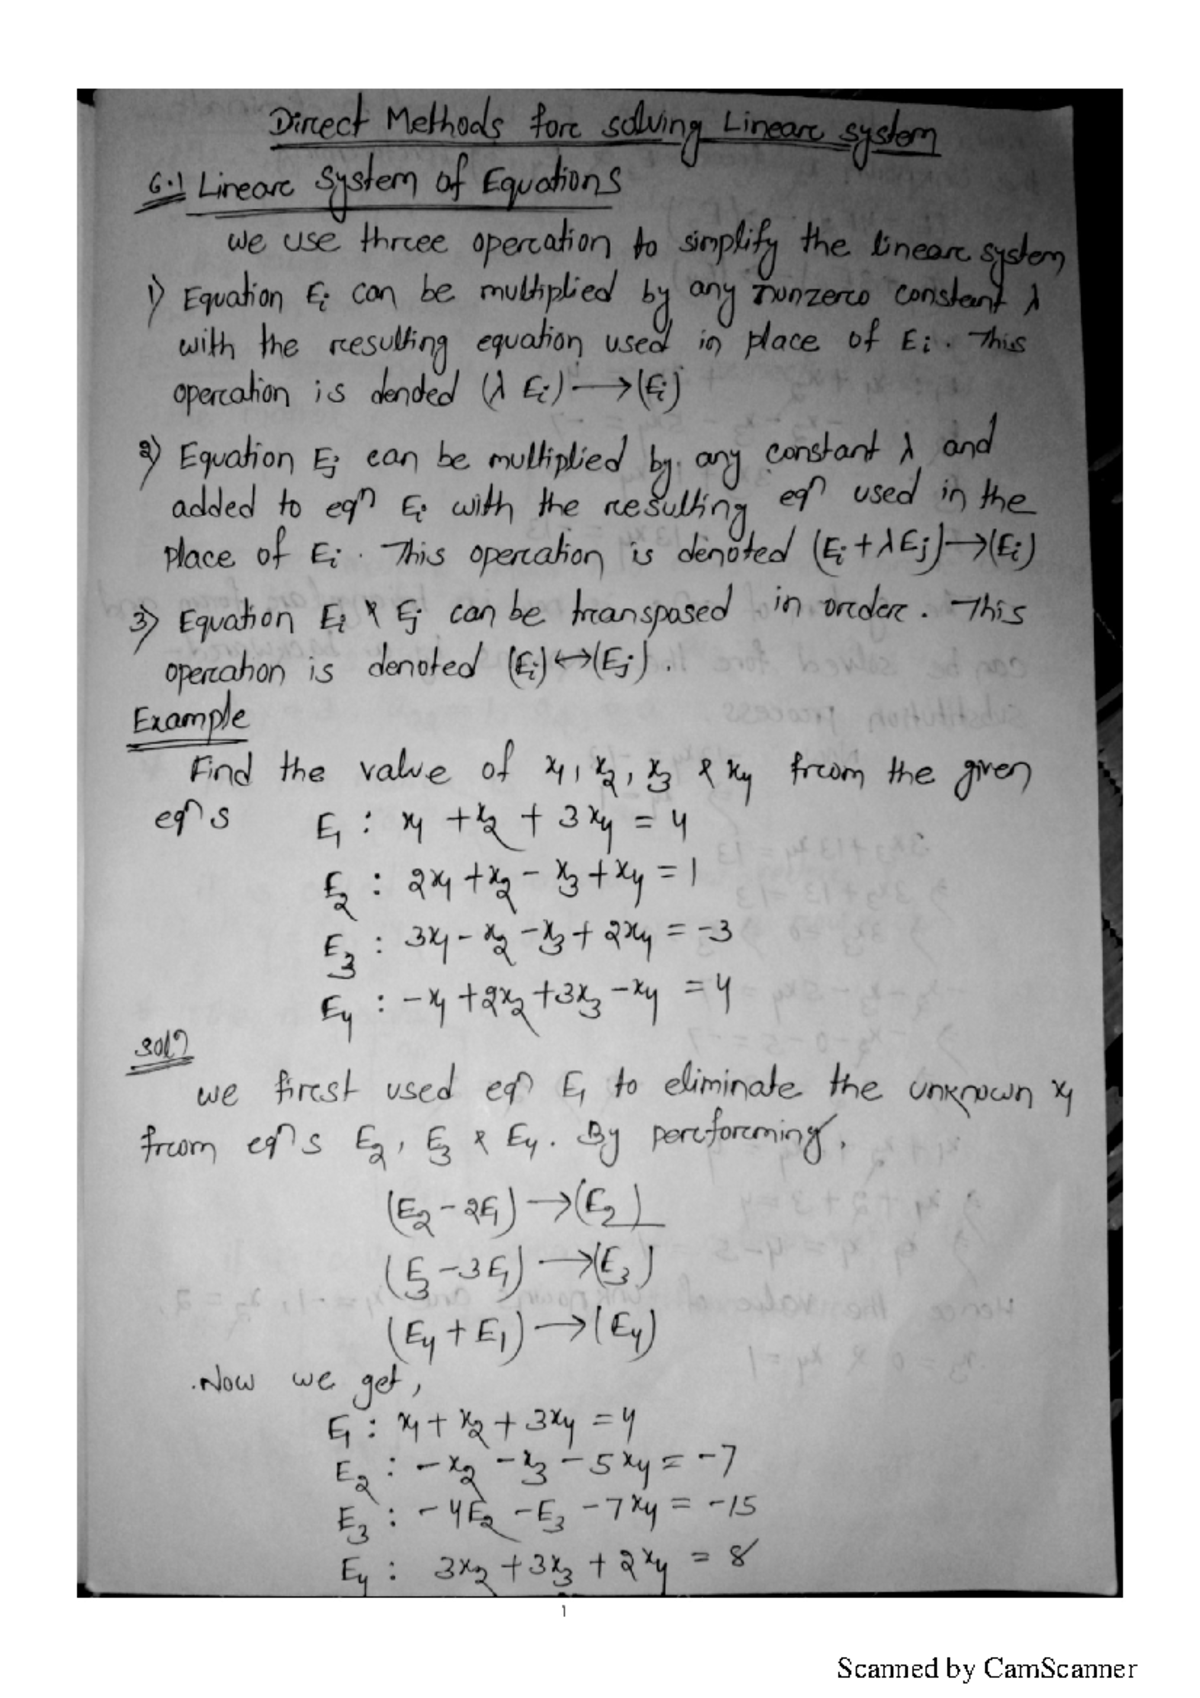 Direct Methods for solving Linear system
6.1 Linear System of Equations
we use three operation to simplify the linear system
1) Equation Ei can be multiplied by any nunzero constant λ
with the resulting equation used in place of Ei. This
operation is denoted (λ Ei) → (Ei)
2) Equation Ej can be multiplied by any constant λ and
added to eqn Ei with the resulting eqn used in the
place of Ei. This operation is denoted (Ei + λEj) → (Ei)
3) Equation Ei & Ej can be transposed in order. This
operation is denoted (Ei) ↔ (Ej).
Example
Find the value of x1, x2, x3 & x4 from the given
eqn s E1 : x1 + x2 + 3x4 = 4
E2 : 2x1 + x2 - x3 + x4 = 1
E3 : 3x1 - x2 - x3 + 2x4 = -3
E4 : -x1 + 2x2 + 3x3 - x4 = 4
Soln
we first used eqn E1 to eliminate the unknown x1
from eqn s E2, E3 & E4. By performing,
(E2 - 2E1) → (E2)
(E3 - 3E1) → (E3)
(E4 + E1) → (E4)
Now we get,
E1 : x1 + x2 + 3x4 = 4
E2 : -x2 - x3 - 5x4 = -7
E3 : -4E2 - E3 - 7x4 = -15
E4 : 3x2 + 3x3 + 2x4 = 8
1
Scanned by CamScanner